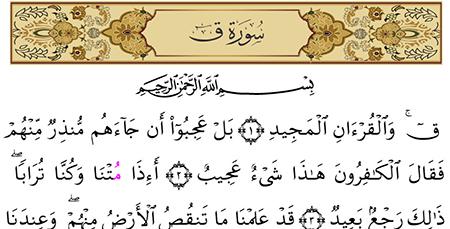 سُورَة ق
بِسْمِ ٱللَّهِ ٱلرَّحْمَٰنِ ٱلرَّحِيمِ
قٓ ۚ وَٱلْقُرْءَانِ ٱلْمَجِيدِ ﴿١﴾ بَلْ عَجِبُوٓا۟ أَن جَآءَهُم مُّنذِرٌ مِّنْهُمْ
فَقَالَ ٱلْكَٰفِرُونَ هَٰذَا شَىْءٌ عَجِيبٌ ﴿٢﴾ أَءِذَا مُتْنَا وَكُنَّا تُرَابًا ۖ
ذَٰلِكَ رَجْعٌۢ بَعِيدٌ ﴿٣﴾ قَدْ عَلِمْنَا مَا تَنقُصُ ٱلْأَرْضُ مِنْهُمْ ۖ وَعِندَنَا